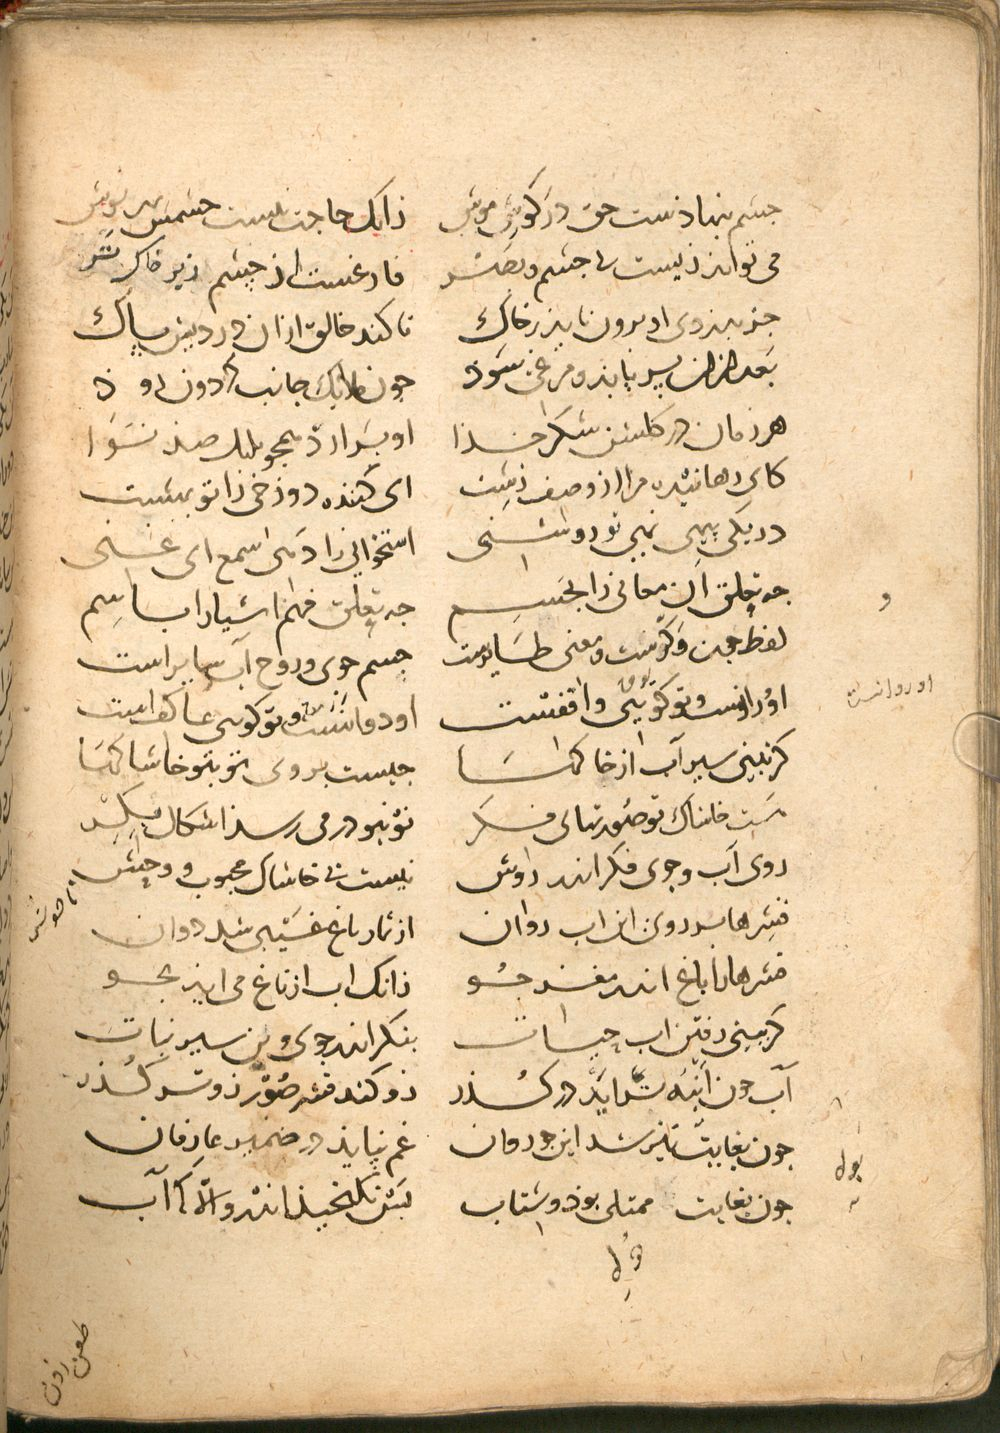 چشم ننهادست حق در کوش موش زانک حاجت نیست چشمش بهر نوش
می تواند زیست بی چشم و بصر فارغست از چشم زیر خاک تر
جز بدزدی او برون ناید ز خاک تا کند خالق از آن دزدیش پاک
بعد از آن پر یابد و مرغی شود چون ملایک جانب گردون رود
هر زمان در کلشن شکر خدا او برآرد همچو بلبل صد نوا
کای رهاننده مرا از وصف زشت ای کننده دوزخی را تو بهشت
در یکی پیهی نهی تو روشنی استخوانی را دهی سمع ای غنی
چه تعلق آن معانی را بجسم چه تعلق فهم اشیا را باسم
لفظ چون وکرست و معنی طایرست جسم جوی و روح آب سایرست
او روانست و تو کویی واقفست او دوانست و تو کویی عاکفست
کر نبینی سیر آب از خاکها چیست بروی نو بنو خاشاکها
هست خاشاک تو صورتهای فکر نو بنو در می رسد اشکال بکر
روی آب و جوی فکر اندر روش نیست بی خاشاک محبوب و وحش
قشرها بر روی این آب روان از ثمار باغ غیبی شد دوان
قشرها را باغ اندر مغز جو زانک آب از باغ می آید بجو
کر نبینی رفتن آب حیات بنکر اندر جوی و این سیر نبات
آب چون انبه تر آید در کذر زو کند قشر صور زوتر کذر
چون بغایت تیز شد این جو روان غم نپاید در ضمیر عارفان
چون بغایت ممتلی بود و شتاب پس نکنجید اندرو الا که آب
او روانست
طعن زدن